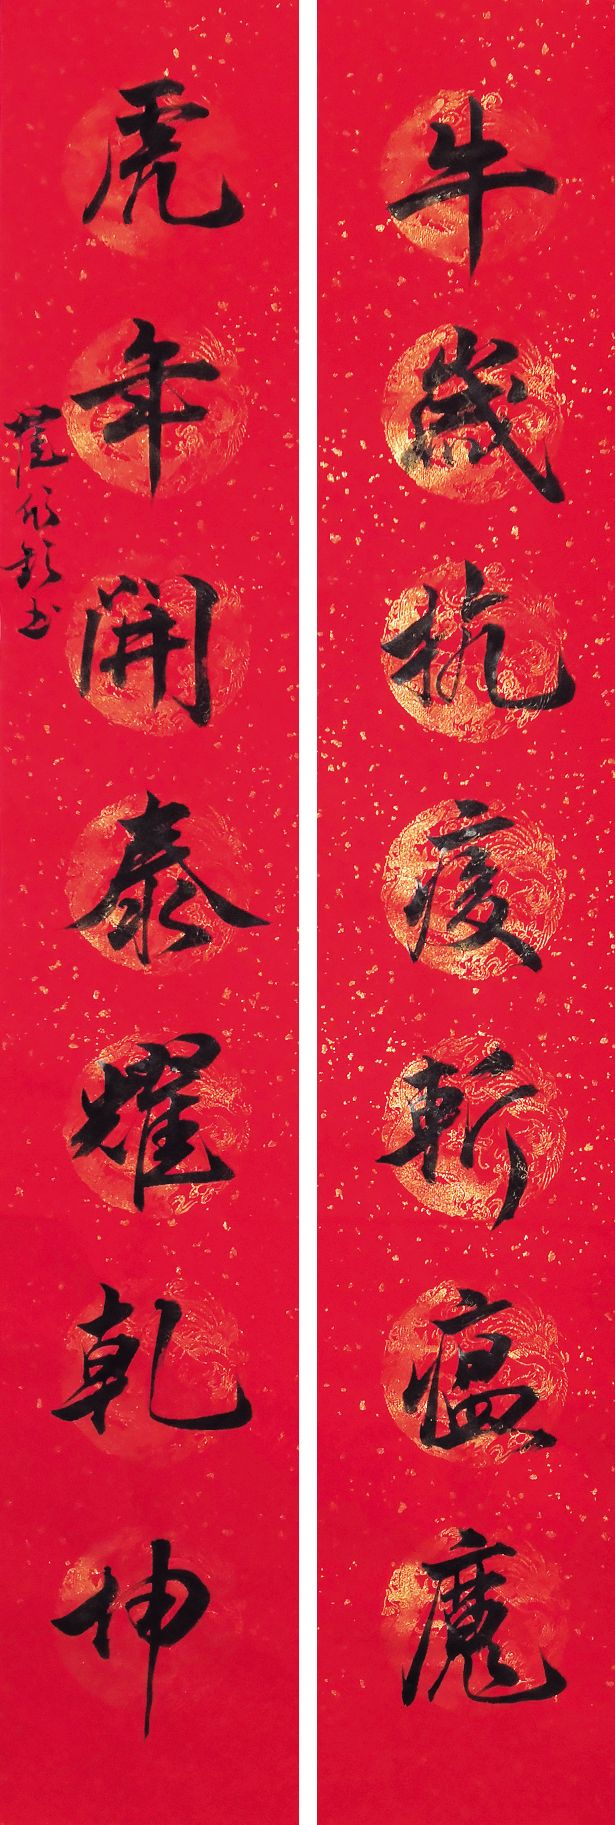 牛歲抗疫斬瘟魔
虎年開泰耀乾坤